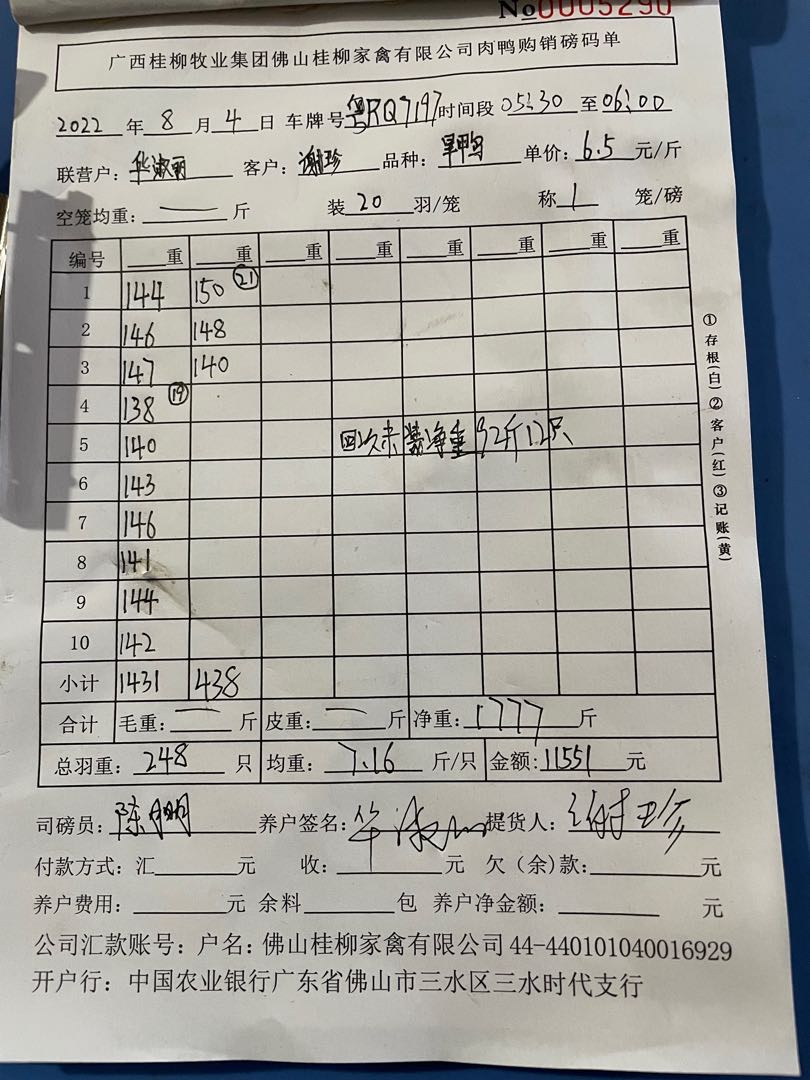 No0005290
广西桂柳牧业集团佛山桂柳家禽有限公司肉鸭购销磅码单
2022 年 8 月 4 日 车牌号 粤RQ7197 时间段 05:30 至 06:00
联营户: 华淑丽 客户: 谢珍 品种: 旱鸭 单价: 6.5 元/斤
空笼均重: — 斤 装 20 羽/笼 称 1 笼/磅
编号 重 重 重 重 重 重 重 重
1 144 150 ㉑
2 146 148
3 147 140
4 138 ⑲
5 140 四次未装净重92斤12只
6 143
7 146
8 141
9 144
10 142
小计 1431 438
合计 毛重: — 斤 皮重: — 斤 净重: 1777 斤
总羽重: 248 只 均重: 7.16 斤/只 金额: 11551 元
司磅员: 陈明 养户签名: 华淑 提货人: 谢珍
付款方式: 汇 元 收: 元 欠(余)款: 元
养户费用: 元 余料 包 养户净金额: 元
公司汇款账号: 户名: 佛山桂柳家禽有限公司 44-440101040016929
开户行: 中国农业银行广东省佛山市三水区三水时代支行
①存根(白)②客户(红)③记账(黄)